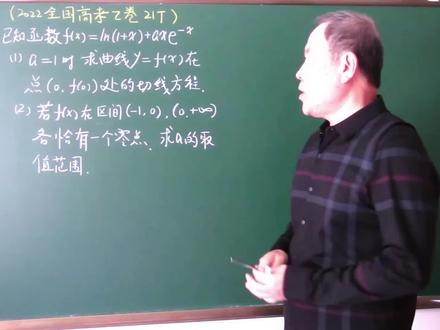 (2022全国高考乙卷 21T)
已知函数f(x)=ln(1+x)+axe^{-x}
(1) a=1时 求曲线y=f(x)在
点(0, f(0))处的切线方程.
(2) 若f(x)在区间(-1,0), (0,+∞)
各恰有一个零点, 求a的取
值范围.